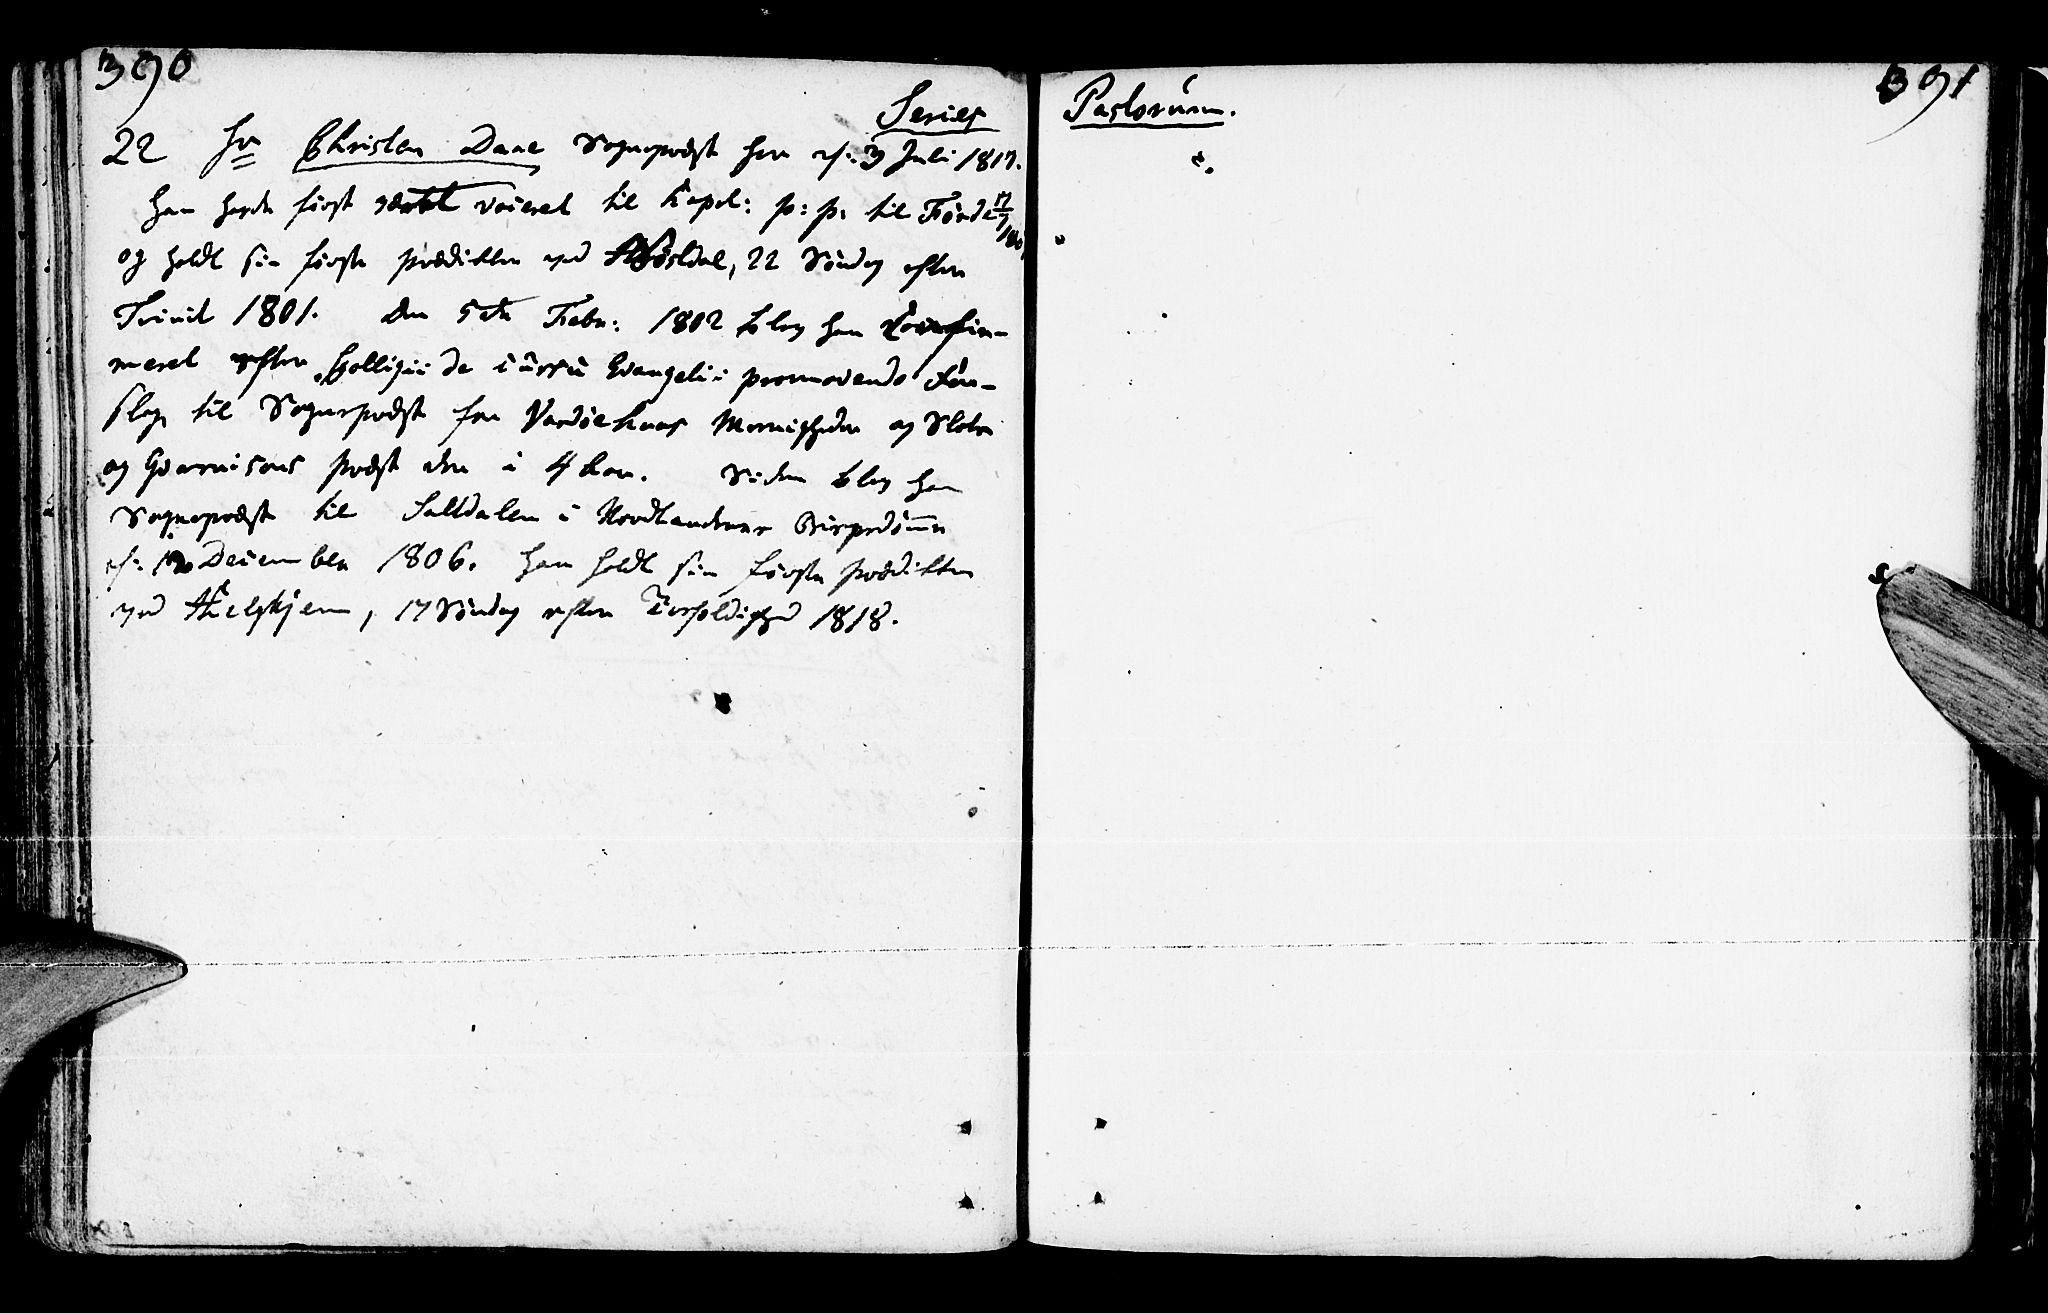 390
391
Series Pastorum.
22 Hr Christen Daae Sognepræst her af: 3 Juli 1817.
Han havde först været voceret til Capel: p: p: til Förde
og holdt sin förste prædikken ved 22 Söndag efter
Trinit 1801. Den 5te Febr: 1802 blev han confir-
meret efter Collegii de cursu Evangelii promovendo For-
slag til Sognepræst for Vardöehuus Menigheder og Slots
og Guarnisons Præst der i 4 Aar. Siden blev han
Sognepræst til Saltdalen i Nordlandenes Bispedömme
af: December 1806. Han holdt sin förste prædikken
ved, 17 Söndag efter Trefoldighed 1818.